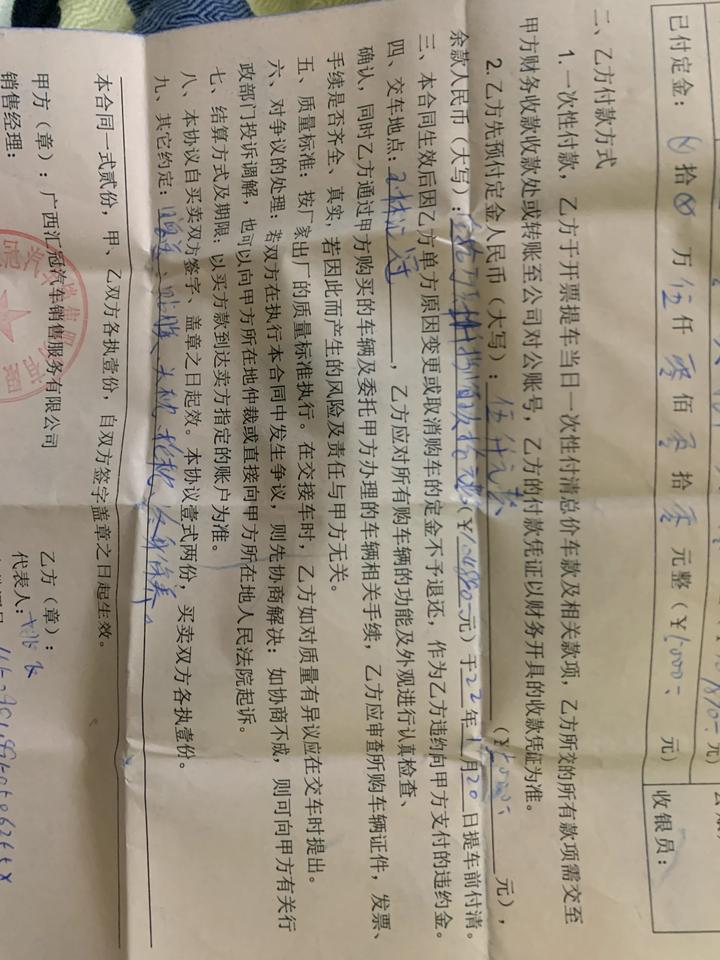 元)
已付定金： ⊗ 拾 ⊗ 万 伍 仟 零 佰 零 拾 零 元整（￥5000-元）
收银员：
二、乙方付款方式
1. 一次性付款，乙方于开票提车当日一次性付清总价车款及相关款项，乙方所交的所有款项需交至
甲方财务收款收款处或转账至公司对公账号，乙方的付款凭证以财务开具的收款凭证为准。
2. 乙方先预付定金人民币（大写）：伍仟元整（￥5000-元），
余款人民币（大写）：（￥124880-元）于22年1月20日提车前付清。
三、本合同生效后因乙方单方原因变更或取消购车的定金不予退还，作为乙方违约向甲方支付的违约金。
四、交车地点：玉林汇冠，乙方应对所有购车辆的功能及外观进行认真检查、
确认，同时乙方通过甲方购买的车辆及委托甲方办理的车辆相关手续，乙方应审查所购车辆证件，发票、
手续是否齐全、真实，若因此而产生的风险及责任与甲方无关。
五、质量标准：按厂家出厂的质量标准执行。在交接车时，乙方如对质量有异议应在交车时提出。
六、对争议的处理：若双方在执行本合同中发生争议，则先协商解决；如协商不成，则可向甲方有关行
政部门投诉调解，也可以向甲方所在地仲裁或直接向甲方所在地人民法院起诉。
七、结算方式及期限：以买方款到达卖方指定的账户为准。
八、本协议自买卖双方签字、盖章之日起效。本协议壹式两份，买卖双方各执壹份。
九、其它约定：贴膜
本合同一式贰份，甲、乙双方各执壹份，自双方签字盖章之日起生效。
甲方（章）：广西汇冠汽车销售服务有限公司
乙方（章）：
销售经理：
代表人：